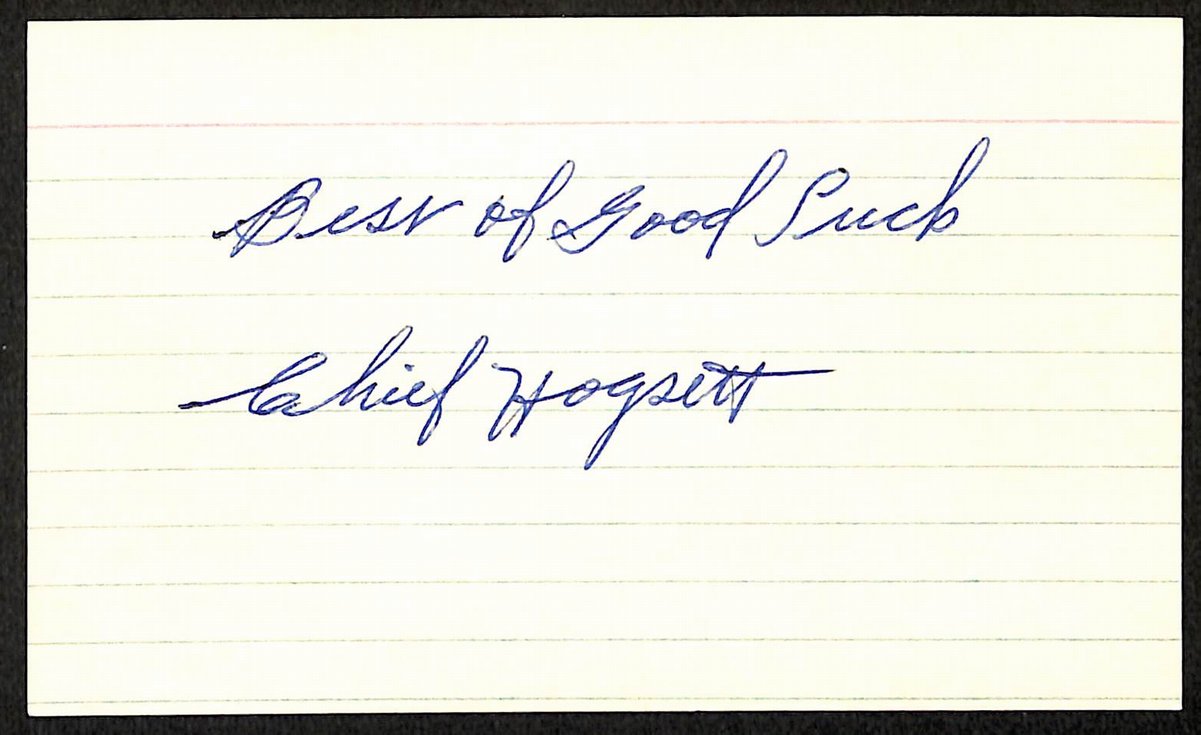 Best of Good Luck
Chief Hogsett